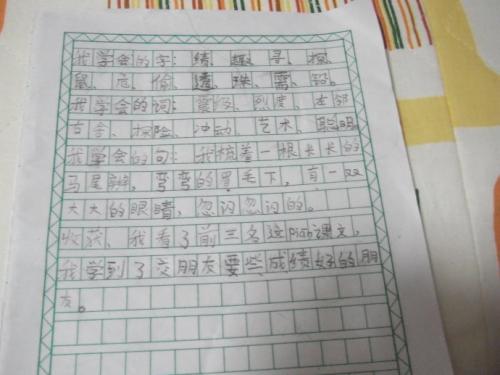 我学会的字：绩、趣、寻、探、
鼠、危、偷、透、珠、需、毁。
我学会的词：等级、烈度、左邻
右舍、探险、冲动、艺术、聪明
我学会的句：我梳着一根长长的
马尾辫，弯弯的眉毛下，有一双
大大的眼睛，忽闪忽闪的。
收获、我看了前三名这pian课文，
我学到了交朋友要些成绩好的朋
友。